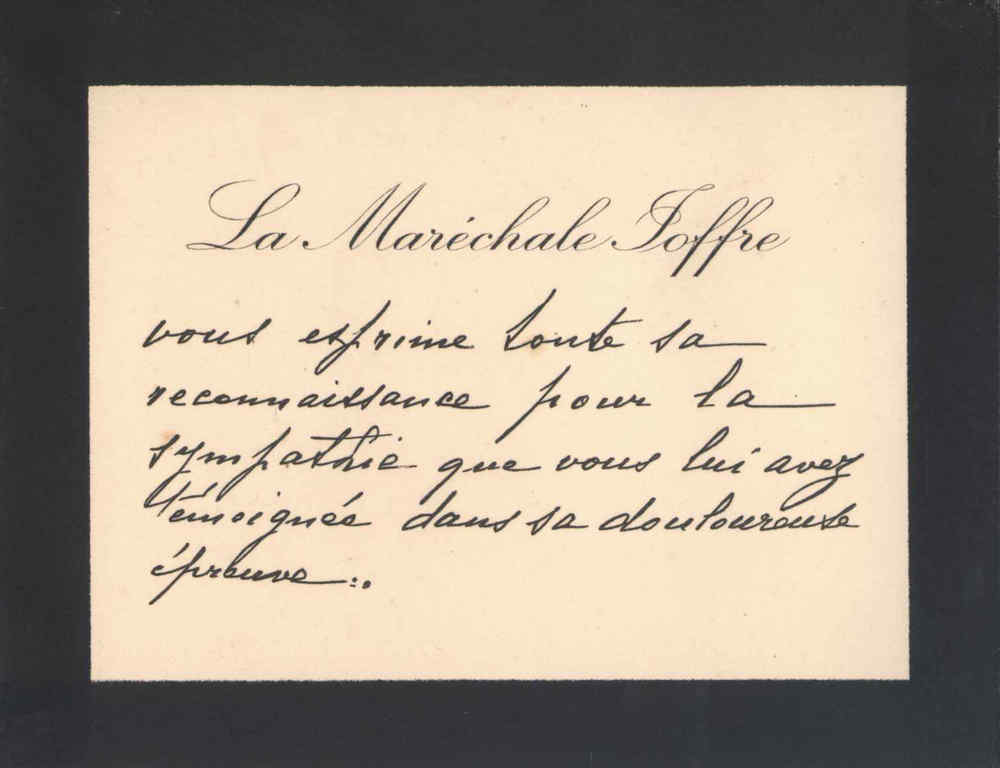 La Maréchale Joffre
vous exprime toute sa
reconnaissance pour la
sympathie que vous lui avez
témoignée dans sa douloureuse
épreuve...